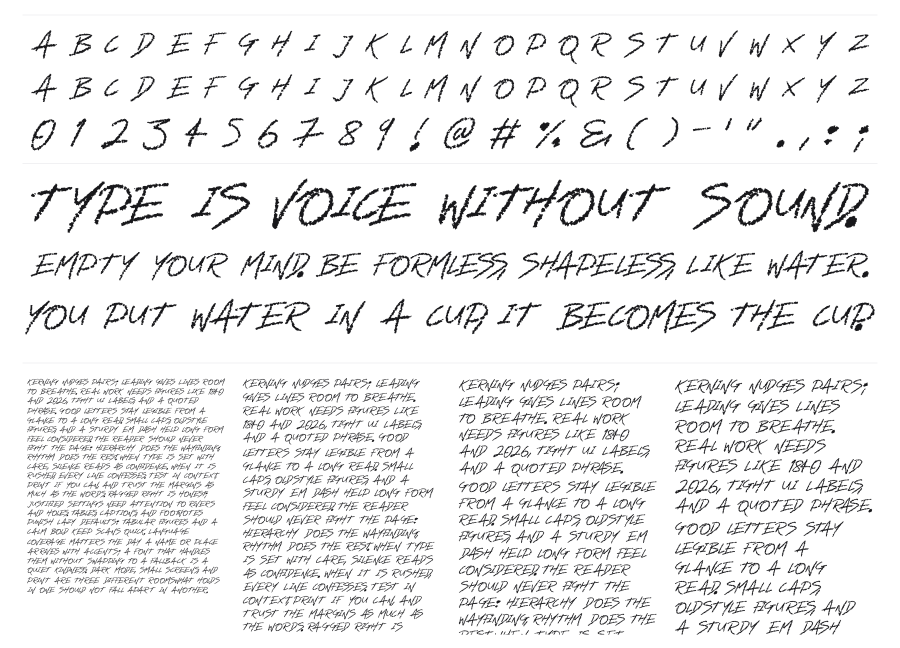 A B C D E F G H I J K L M N O P Q R S T U V W X Y Z
A B C D E F G H I J K L M N O P Q R S T U V W X Y Z
0 1 2 3 4 5 6 7 8 9 ! @ # % & ( ) - ' " . , : ;
TYPE IS VOICE WITHOUT SOUND.
EMPTY YOUR MIND. BE FORMLESS, SHAPELESS, LIKE WATER.
YOU PUT WATER IN A CUP, IT BECOMES THE CUP.
KERNING NUDGES PAIRS; LEADING GIVES LINES ROOM
TO BREATHE. REAL WORK NEEDS FIGURES LIKE 1840
AND 2026, TIGHT UI LABELS, AND A QUOTED
PHRASE. GOOD LETTERS STAY LEGIBLE FROM A
GLANCE TO A LONG READ. SMALL CAPS, OLDSTYLE
FIGURES, AND A STURDY EM DASH HELP LONG FORM
FEEL CONSIDERED. THE READER SHOULD NEVER
FIGHT THE PAGE: HIERARCHY DOES THE WAYFINDING,
RHYTHM DOES THE REST. WHEN TYPE IS SET WITH
CARE, SILENCE READS AS CONFIDENCE. WHEN IT IS
RUSHED, EVERY LINE CONFESSES. TEST IN CONTEXT:
PRINT IF YOU CAN, AND TRUST THE MARGINS AS
MUCH AS THE WORDS. RAGGED RIGHT IS HONEST;
JUSTIFIED SETTINGS NEED ATTENTION TO RIVERS
AND HOLES. TABLES, CAPTIONS, AND FOOTNOTES
PUNISH LAZY DEFAULTS: TABULAR FIGURES AND A
CALM BOLD KEEP SCANS QUICK. LANGUAGE
COVERAGE MATTERS THE DAY A NAME OR PLACE
ARRIVES WITH ACCENTS; A FONT THAT HANDLES
THEM WITHOUT SWAPPING TO A FALLBACK IS A
QUIET KINDNESS. DARK MODE, SMALL SCREENS, AND
PRINT ARE THREE DIFFERENT ROOMS. WHAT HOLDS
IN ONE SHOULD NOT FALL APART IN ANOTHER.
KERNING NUDGES PAIRS; LEADING
GIVES LINES ROOM TO BREATHE.
REAL WORK NEEDS FIGURES LIKE
1840 AND 2026, TIGHT UI LABELS,
AND A QUOTED PHRASE. GOOD
LETTERS STAY LEGIBLE FROM A
GLANCE TO A LONG READ. SMALL
CAPS, OLDSTYLE FIGURES, AND A
STURDY EM DASH HELP LONG FORM
FEEL CONSIDERED. THE READER
SHOULD NEVER FIGHT THE PAGE:
HIERARCHY DOES THE WAYFINDING,
RHYTHM DOES THE REST. WHEN TYPE
IS SET WITH CARE, SILENCE READS
AS CONFIDENCE. WHEN IT IS RUSHED,
EVERY LINE CONFESSES. TEST IN
CONTEXT: PRINT IF YOU CAN, AND
TRUST THE MARGINS AS MUCH AS
THE WORDS. RAGGED RIGHT IS
KERNING NUDGES PAIRS;
LEADING GIVES LINES ROOM
TO BREATHE. REAL WORK
NEEDS FIGURES LIKE 1840
AND 2026, TIGHT UI LABELS,
AND A QUOTED PHRASE.
GOOD LETTERS STAY LEGIBLE
FROM A GLANCE TO A LONG
READ. SMALL CAPS, OLDSTYLE
FIGURES, AND A STURDY EM
DASH HELP LONG FORM FEEL
CONSIDERED. THE READER
SHOULD NEVER FIGHT THE
PAGE: HIERARCHY DOES THE
WAYFINDING, RHYTHM DOES THE
REST. WHEN TYPE IS SET
KERNING NUDGES PAIRS;
LEADING GIVES LINES
ROOM TO BREATHE.
REAL WORK NEEDS
FIGURES LIKE 1840 AND
2026, TIGHT UI LABELS,
AND A QUOTED PHRASE.
GOOD LETTERS STAY
LEGIBLE FROM A
GLANCE TO A LONG
READ. SMALL CAPS,
OLDSTYLE FIGURES, AND
A STURDY EM DASH